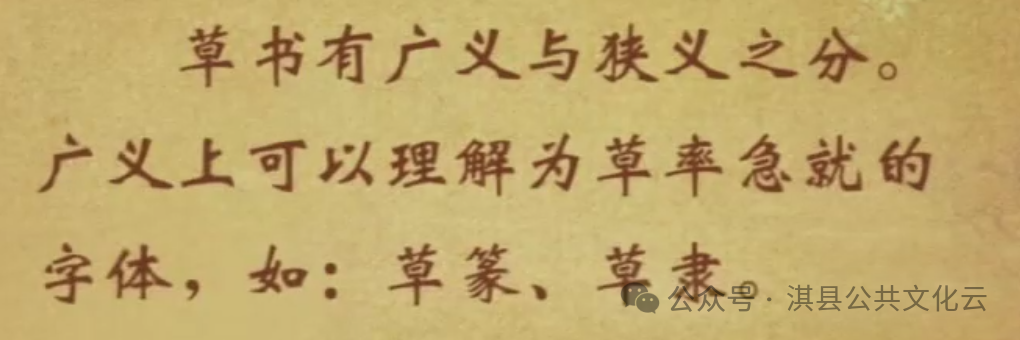 草书有广义与狭义之分。
广义上可以理解为草率急就的
字体，如：草篆、草隶。
公众号 · 淇县公共文化云